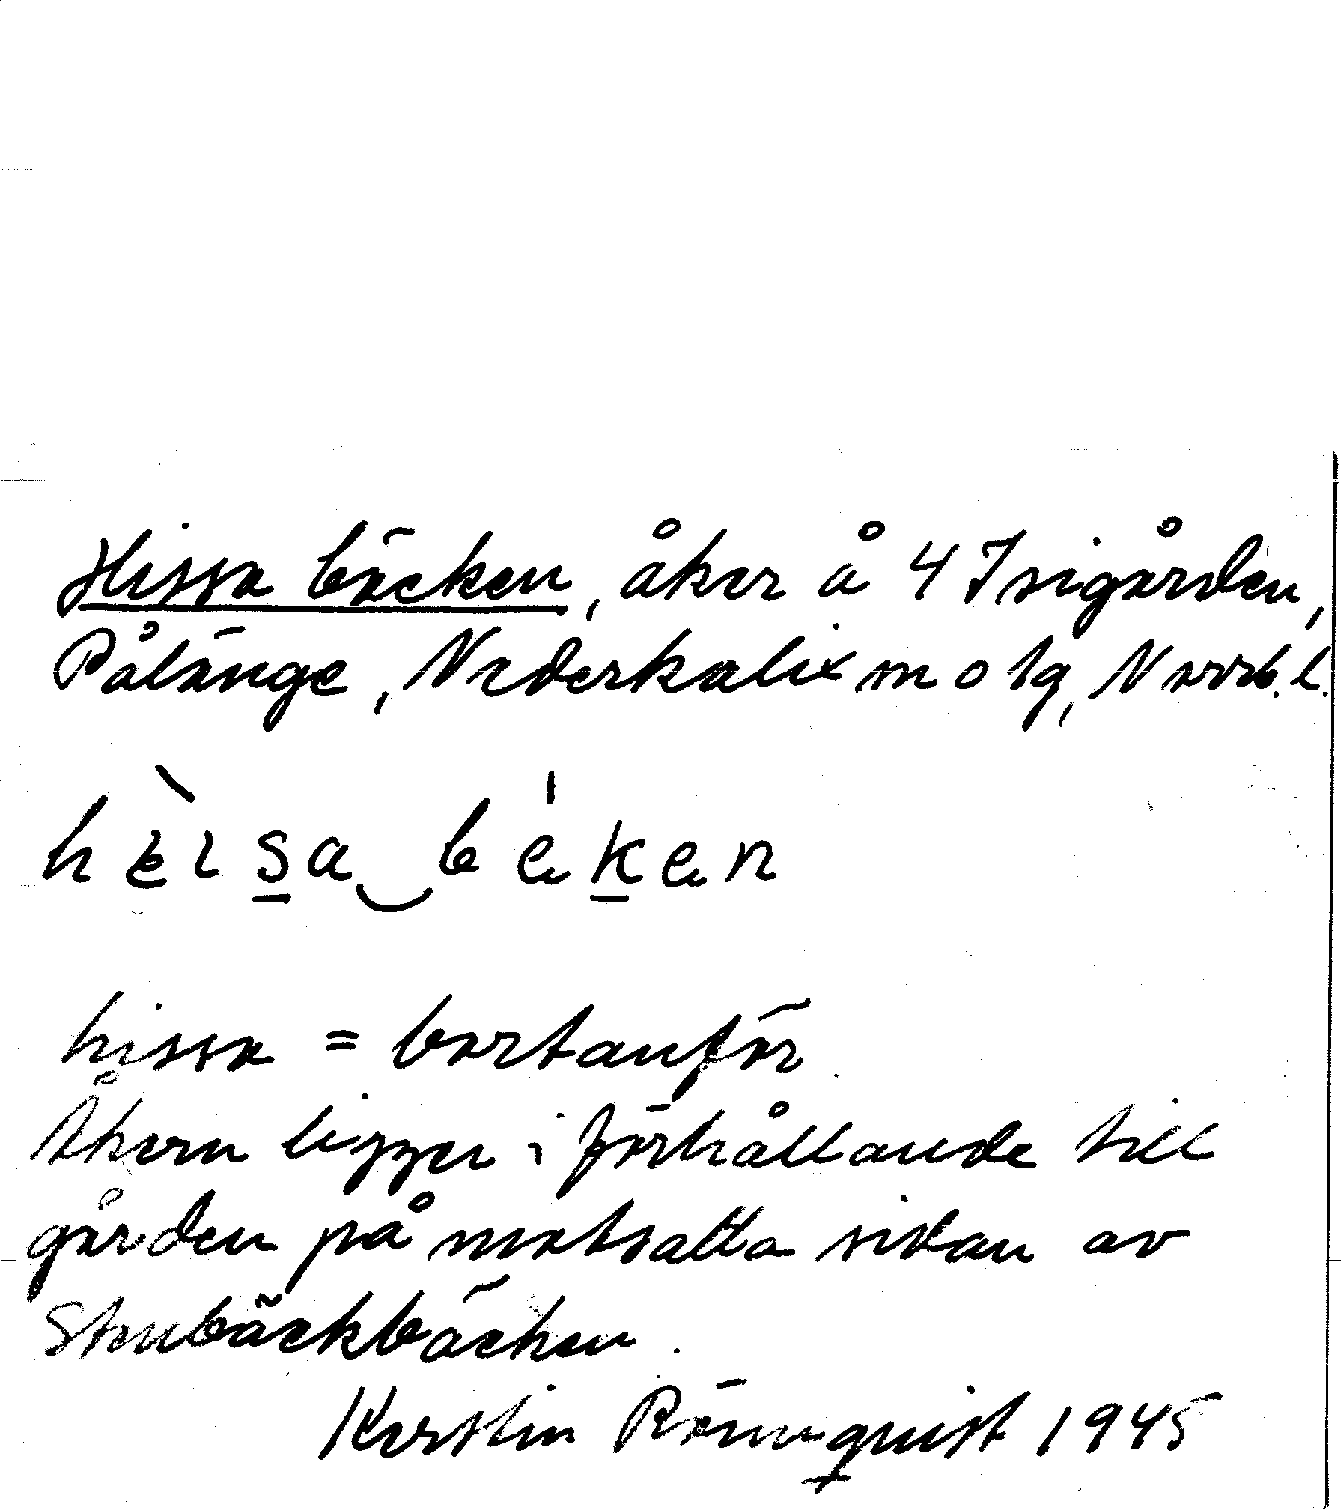 Hissa bäcken, åker å 4 Isigården,
Pålänge, Nederkalix sn o tg, Norrb. l.
hèɩsa‿béken
hissa = bortanför
Åkern ligger i förhållande till
gården på motsatta sidan av
Stenbäckbäcken.
Kerstin Rönnquist 1945